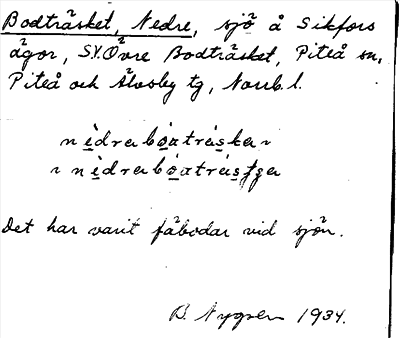 Bodträsket, Nedre, sjö å Sikfors
ägor, S.V. Övre Bodträsket, Piteå sn,
Piteå och Älvsby tg, Norrb. l.
Det har varit fäbodar vid sjön.
B. Nygren 1934.